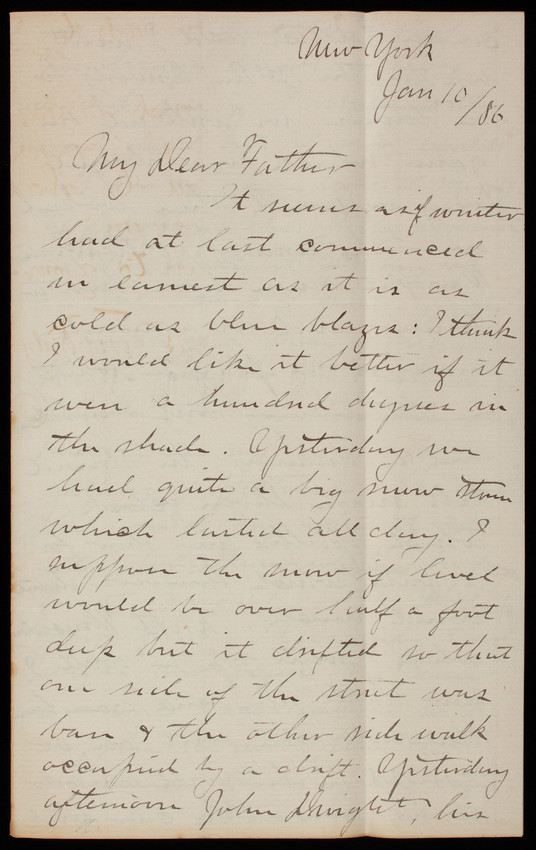 New York
Jan 10/86
My Dear Father
It seems as if winter
had at last commenced
in earnest as it is as
cold as blue blazes: I think
I would like it better if it
were a hundred degrees in
the shade. Yesterday we
had quite a big snow storm
which lasted all day. I
suppose the snow if level
would be over half a foot
deep but it drifted so that
one side of the street was
bare & the other side walk
occupied by a drift. Yesterday
afternoon John Dwight, his